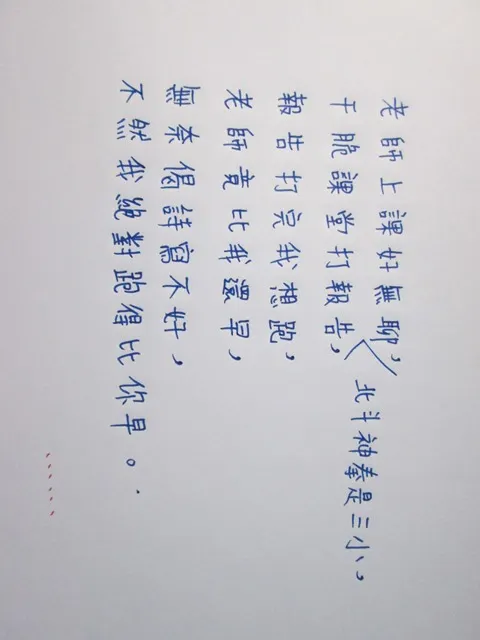 老師上課好無聊，
北斗神拳是三小，
干脆課堂打報告，
報告打完我想跑，
老師竟比我還早，
無奈偈詩寫不好，
不然我絕對跑得比你早。